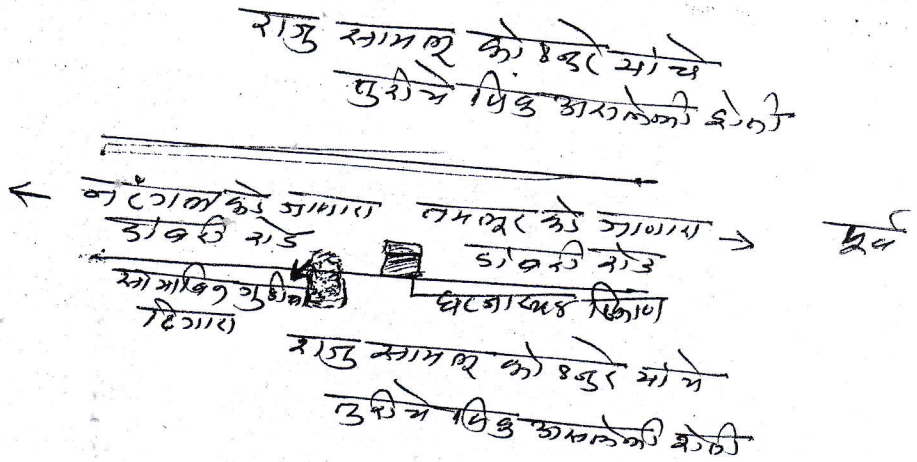 राजु सामलू कोडनुरे यांचे
तुरीचे पिक असलेली शेती
← नरंगल कडे जाणारा
डांबरी रोड
तमलूर कडे जाणारा →
डांबरी रोड
पूर्व
सोयाबिन गुडीचा
ढिगारा
घटनास्थळ ठिकाण
राजु सामलू कोडनुरे यांचे
तुरीचे पिक असलेली शेती